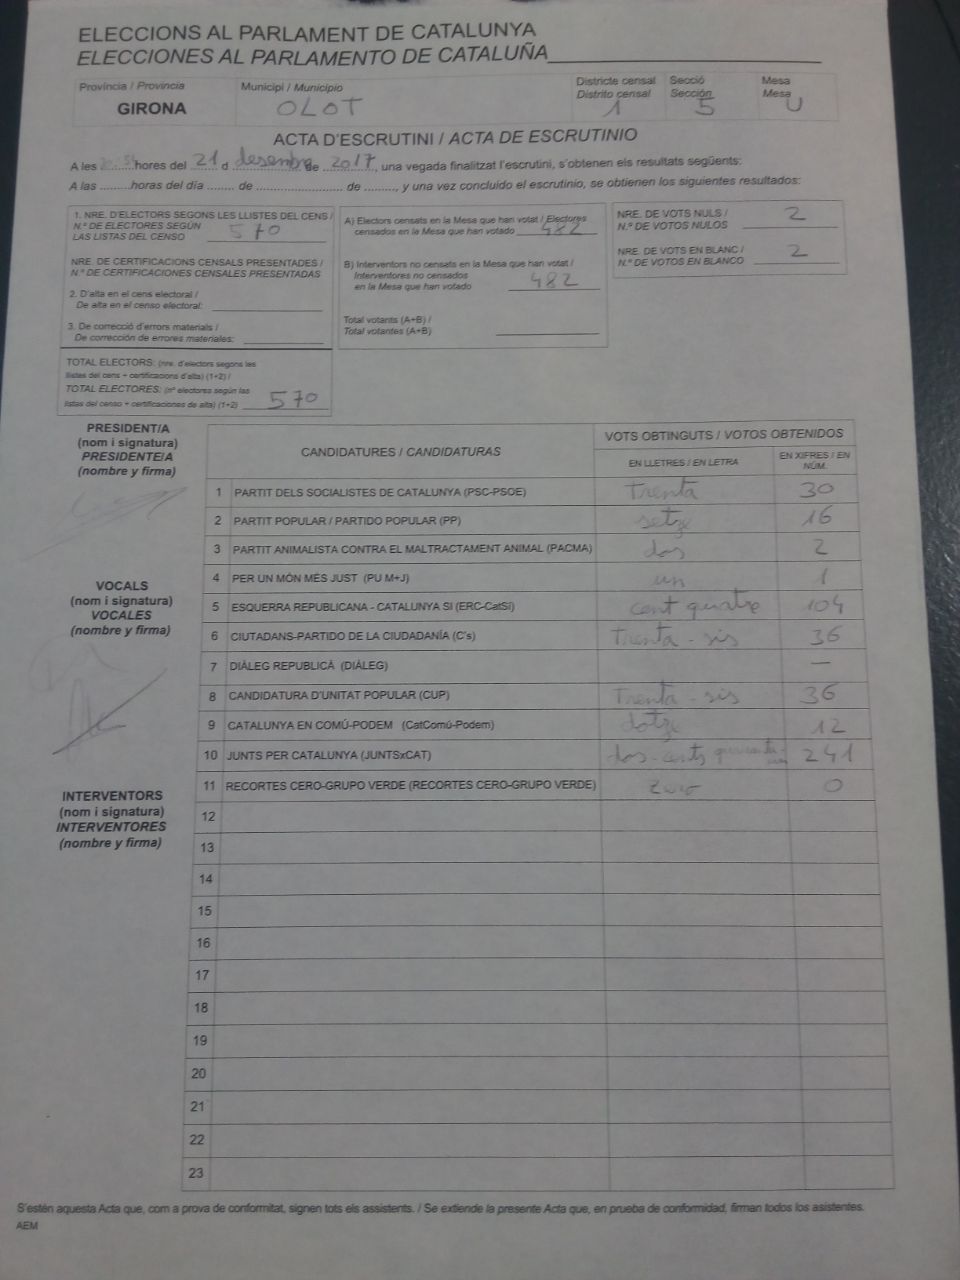 ELECCIONS AL PARLAMENT DE CATALUNYA
ELECCIONES AL PARLAMENTO DE CATALUÑA
Província / Provincia
GIRONA
Municipi / Municipio
OLOT
Districte censal
Distrito censal
1
Secció
Sección
5
Mesa
Mesa
U
ACTA D'ESCRUTINI / ACTA DE ESCRUTINIO
A les ........ hores del 21 d desembre de 2017, una vegada finalitzat l'escrutini, s'obtenen els resultats següents:
A las .........horas del día ....... de ...................... de ........, y una vez concluído el escrutinio, se obtienen los siguientes resultados:
1. NRE. D'ELECTORS SEGONS LES LLISTES DEL CENS /
N.º DE ELECTORES SEGÚN
LAS LISTAS DEL CENSO 570
NRE. DE CERTIFICACIONS CENSALS PRESENTADES /
N.º DE CERTIFICACIONES CENSALES PRESENTADAS
2. D'alta en el cens electoral /
De alta en el censo electoral:
3. De correcció d'errors materials /
De corrección de errores materiales:
TOTAL ELECTORS: (nre. d'electors segons les
llistes del cens + certificacions d'alta) (1+2) /
TOTAL ELECTORES: (nº electores según las
listas del censo + certificaciones de alta) (1+2) 570
A) Electors censats en la Mesa que han votat / Electores
censados en la Mesa que han votado 482
B) Interventors no censats en la Mesa que han votat /
Interventores no censados
en la Mesa que han votado 482
Total votants (A+B) /
Total votantes (A+B)
NRE. DE VOTS NULS /
N.º DE VOTOS NULOS 2
NRE. DE VOTS EN BLANC /
N.º DE VOTOS EN BLANCO 2
PRESIDENT/A
(nom i signatura)
PRESIDENTE/A
(nombre y firma)
VOCALS
(nom i signatura)
VOCALES
(nombre y firma)
INTERVENTORS
(nom i signatura)
INTERVENTORES
(nombre y firma)
CANDIDATURES / CANDIDATURAS
VOTS OBTINGUTS / VOTOS OBTENIDOS
EN LLETRES / EN LETRA
EN XIFRES / EN
NÚM.
1 PARTIT DELS SOCIALISTES DE CATALUNYA (PSC-PSOE) trenta 30
2 PARTIT POPULAR / PARTIDO POPULAR (PP) setze 16
3 PARTIT ANIMALISTA CONTRA EL MALTRACTAMENT ANIMAL (PACMA) dos 2
4 PER UN MÓN MÉS JUST (PU M+J) un 1
5 ESQUERRA REPUBLICANA - CATALUNYA SI (ERC-CatSí) cent quatre 104
6 CIUTADANS-PARTIDO DE LA CIUDADANÍA (C's) trenta-sis 36
7 DIÀLEG REPUBLICÀ (DIÀLEG) —
8 CANDIDATURA D'UNITAT POPULAR (CUP) trenta-sis 36
9 CATALUNYA EN COMÚ-PODEM (CatComú-Podem) dotze 12
10 JUNTS PER CATALUNYA (JUNTSxCAT) dos-cents quaranta-un 241
11 RECORTES CERO-GRUPO VERDE (RECORTES CERO-GRUPO VERDE) zero 0
12
13
14
15
16
17
18
19
20
21
22
23
S'estén aquesta Acta que, com a prova de conformitat, signen tots els assistents. / Se extiende la presente Acta que, en prueba de conformidad, firman todos los asistentes.
AEM